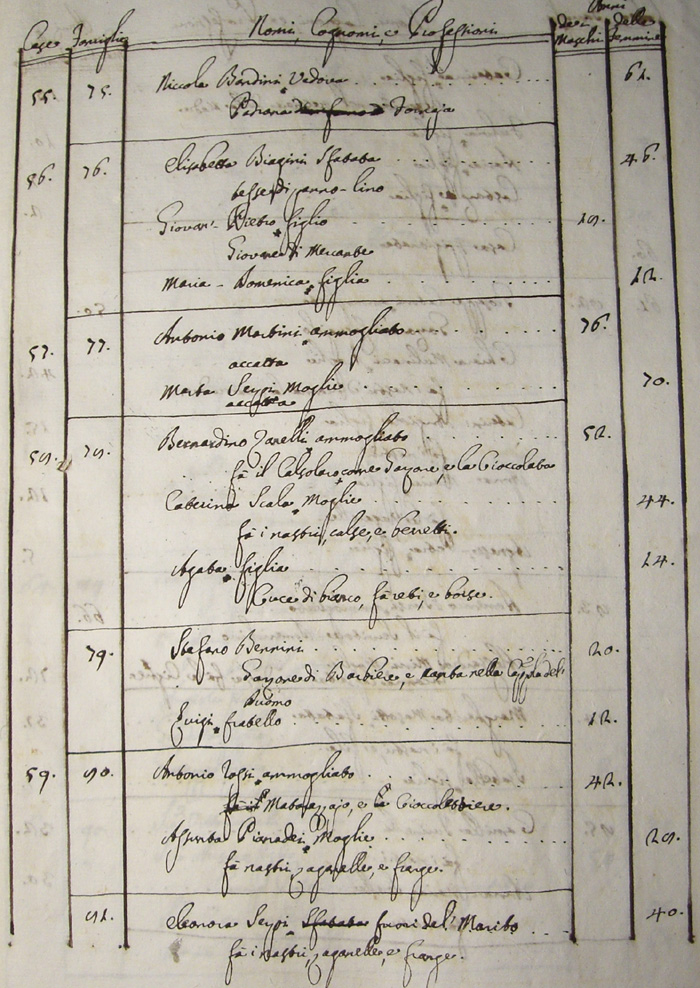 Case Famiglie Nomi, Cognomi, e Professioni Anni
de i Maschi delle Femmine
55. 75. Niccola Bardini Vedova 61.
Padrona Bottega
56. 76. Elisabetta Biagini 46.
tesse di panno-lino
Giovan- Pietro figlio 19.
Giovane di Mercante
Maria - Domenica figlia 12.
57. 77. Antonio Martini ammogliato 76.
accatta
Marta Serpi Moglie 70.
accatta
58. 78. Bernardino Zanelli ammogliato 52.
fà il Calsolaro come Garzone, e la Cioccolata
Caterina Scala Moglie 44.
fà i nastri, calse, e berretti.
Agata figlia 14.
Cuce di bianco, fà reti, e borse.
79. Stefano Bernini 20.
Garzone di Barbiere, e canta nella Cappella del
Duomo
Luigi fratello 12.
59. 80. Antonio Rossi ammogliato 42.
Materazzajo, e Cioccolattiere.
Assunta Moglie 29.
fà nastri, zaganelle, e frange.
81. Eleonora Serpi fuori del Marito 40.
fà i nastri, zaganelle, e frange.